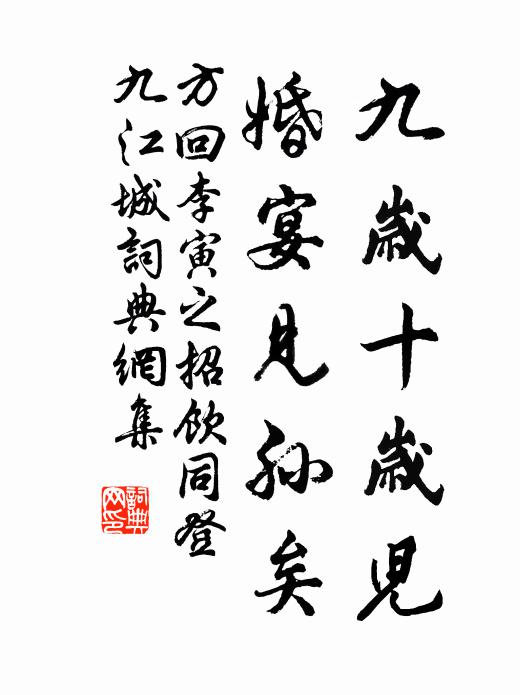 九歲十歲兒
婚宴見孙矣
方回李寅之招飲同登
九江城詞典網集
詞典
网印